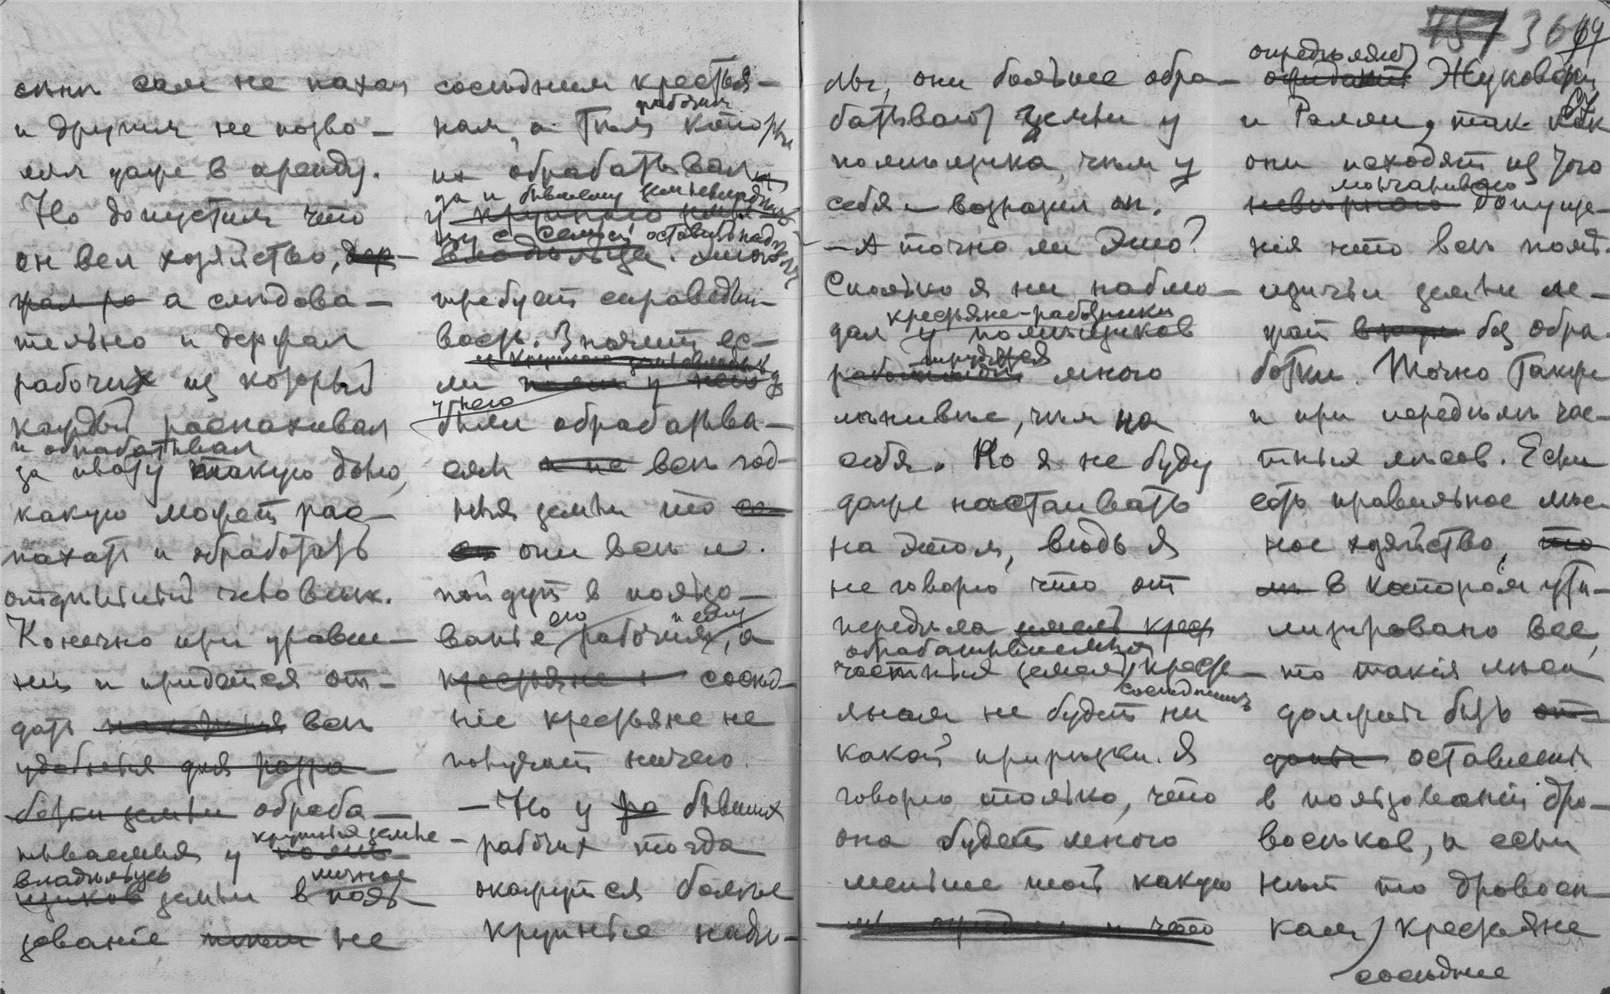 сам не пахал
и другим не позво-
лял даже в аренду.
Но допустим что
он вел хозяйство,
а следова-
тельно и держал
рабочих из которых
каждый распахивал
и обрабатывал
за плату такую долю,
какую может рас-
пахать и обработать
отдельный человек.
Конечно при уравне-
нии и придется от-
дать все
удобныя для разра-
ботки земли обраба-
крупныя земле-
тываемыя у
владельцев личное
земли в поль-
зование не
соседним крестья-
рабочим
нам, а тем которые
их обрабатывали
да и бывшему землевладель-
цу с семьей оставить надел
Этого
требует справедли-
вость. Значит ес-
ли
у него
были обрабатыва-
емы все год-
ныя земли то
они все и
пойдут в пользо-
его и ему
ванье рабочих, а
сосед-
ние крестьяне не
получат ничего.
— Но у бывших
рабочих тогда
окажутся более
крупные наде-
лы, они больше обра-
батывают земли у
помещика, чем у
себя — возразил он.
— А точно ли это?
Сколько я ни наблю-
крестьяне-работники
дал у помещиков
трудятся
много
ленивее, чем на
себя. Но я не буду
даже настаивать
на этом, ведь я
не говорю что от
передела
обрабатываемых
частных земель крестья-
соседним
нам не будет ни
какой прирезки. Я
говорю только, что
она будет много
меньше той какую
757 36
69
определяют
Жуковский
и Ралли, так как
они исходят из того
молчаливого
допуще-
ния что все поме-
щичьи земли ле-
жат без обра-
ботки. Точно также
и при переделе час-
тных лесов. Если
есть правильное лес-
ное хозяйство,
в котором ути-
лизировано все,
то такия леса
должны быть
оставлены
в пользовании дро-
восеков, а если
нет то дровосе-
кам, крестьяне
соседние